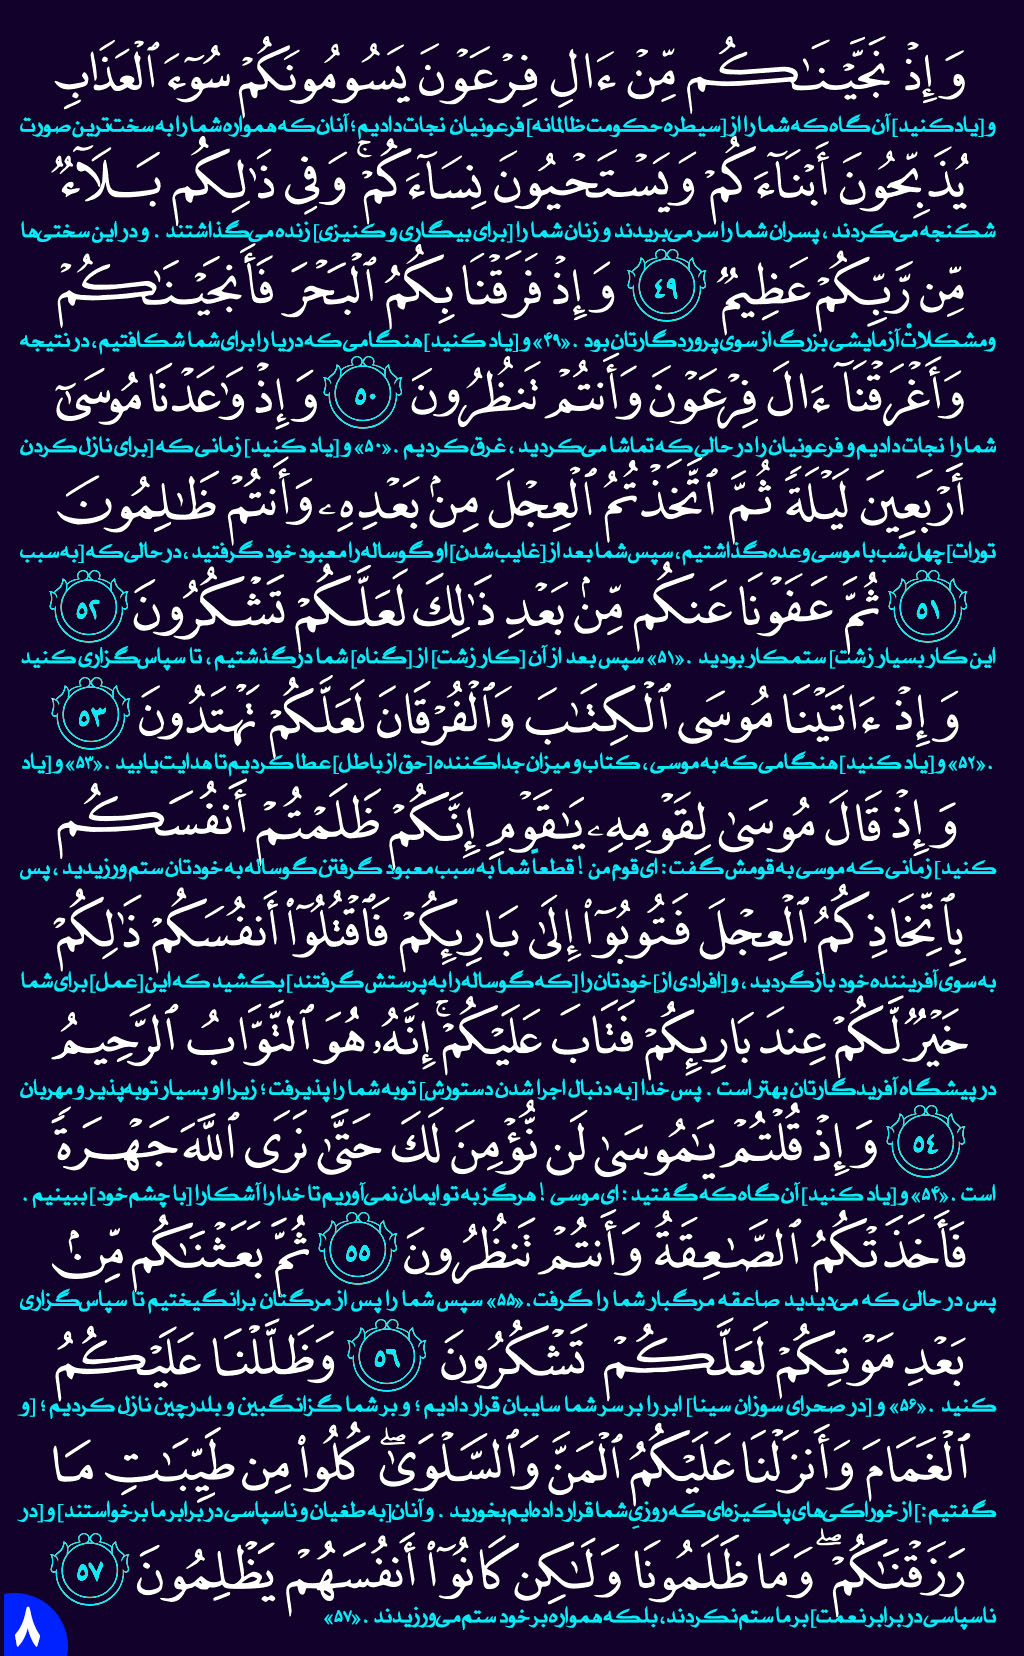 وَإِذۡ نَجَّيۡنَٰكُم مِّنۡ ءَالِ فِرۡعَوۡنَ يَسُومُونَكُمۡ سُوٓءَ ٱلۡعَذَابِ
و [یاد کنید] آن گاه که شما را از [سیطره حکومت ظالمانه] فرعونیان نجات دادیم؛ آنان که همواره شما را به سخت‌ترین صورت
يُذَبِّحُونَ أَبۡنَآءَكُمۡ وَيَسۡتَحۡيُونَ نِسَآءَكُمۡۚ وَفِي ذَٰلِكُم بَلَآءٞ
شکنجه می‌کردند ، پسران شما را سر می‌بریدند و زنان شما را [برای بیگاری و کنیزی] زنده می‌گذاشتند . و در این سختی‌ها
مِّن رَّبِّكُمۡ عَظِيمٞ ٤٩ وَإِذۡ فَرَقۡنَا بِكُمُ ٱلۡبَحۡرَ فَأَنجَيۡنَٰكُمۡ
و مشکلاتْ آزمایشی بزرگ از سوی پروردگارتان بود . «۴۹» و [یاد کنید] هنگامی که دریا را برای شما شکافتیم ، در نتیجه
وَأَغۡرَقۡنَآ ءَالَ فِرۡعَوۡنَ وَأَنتُمۡ تَنظُرُونَ ٥٠ وَإِذۡ وَٰعَدۡنَا مُوسَىٰٓ
شما را نجات دادیم و فرعونیان را در حالی که تماشا می‌کردید ، غرق کردیم . «۵۰» و [یاد کنید] زمانی که [برای نازل کردن
أَرۡبَعِينَ لَيۡلَةٗ ثُمَّ ٱتَّخَذۡتُمُ ٱلۡعِجۡلَ مِنۢ بَعۡدِهِۦ وَأَنتُمۡ ظَٰلِمُونَ
تورات] چهل شب با موسی وعده گذاشتیم ، سپس شما بعد از [غایب شدن] او گوساله را معبود خود گرفتید ، در حالی که [به سبب
٥١ ثُمَّ عَفَوۡنَا عَنكُم مِّنۢ بَعۡدِ ذَٰلِكَ لَعَلَّكُمۡ تَشۡكُرُونَ ٥٢
این کار بسیار زشت] ستمکار بودید . «۵۱» سپس بعد از آن [کار زشت] از [گناه] شما درگذشتیم ، تا سپاس‌گزاری کنید
وَإِذۡ ءَاتَيۡنَا مُوسَى ٱلۡكِتَٰبَ وَٱلۡفُرۡقَانَ لَعَلَّكُمۡ تَهۡتَدُونَ ٥٣
. «۵۲» و [یاد کنید] هنگامی که به موسی ، کتاب و میزان جداکننده [حق از باطل] عطا کردیم تا هدایت یابید . «۵۳» و [یاد
وَإِذۡ قَالَ مُوسَىٰ لِقَوۡمِهِۦ يَٰقَوۡمِ إِنَّكُمۡ ظَلَمۡتُمۡ أَنفُسَكُم
کنید] زمانی که موسی به قومش گفت : ای قوم من ! قطعاً شما به سبب معبود گرفتن گوساله به خودتان ستم ورزیدید ، پس
بِٱتِّخَاذِكُمُ ٱلۡعِجۡلَ فَتُوبُوٓاْ إِلَىٰ بَارِئِكُمۡ فَٱقۡتُلُوٓاْ أَنفُسَكُمۡ ذَٰلِكُمۡ
به سوی آفریننده خود بازگردید ، و [افرادی از] خودتان را [که گوساله را به پرستش گرفتند] بکشید که این [عمل] برای شما
خَيۡرٞ لَّكُمۡ عِندَ بَارِئِكُمۡ فَتَابَ عَلَيۡكُمۡۚ إِنَّهُۥ هُوَ ٱلتَّوَّابُ ٱلرَّحِيمُ
در پیشگاه آفریدگارتان بهتر است . پس خدا [به دنبال اجرا شدن دستورش] توبه شما را پذیرفت ؛ زیرا او بسیار توبه‌پذیر و مهربان
٥٤ وَإِذۡ قُلۡتُمۡ يَٰمُوسَىٰ لَن نُّؤۡمِنَ لَكَ حَتَّىٰ نَرَى ٱللَّهَ جَهۡرَةٗ
است . «۵۴» و [یاد کنید] آن گاه که گفتید : ای موسی ! هرگز به تو ایمان نمی‌آوریم تا خدا را آشکارا [با چشم خود] ببینیم .
فَأَخَذَتۡكُمُ ٱلصَّٰعِقَةُ وَأَنتُمۡ تَنظُرُونَ ٥٥ ثُمَّ بَعَثۡنَٰكُم مِّنۢ
پس در حالی که می‌دیدید صاعقه مرگبار شما را گرفت. «۵۵» سپس شما را پس از مرگتان برانگیختیم تا سپاس‌گزاری
بَعۡدِ مَوۡتِكُمۡ لَعَلَّكُمۡ تَشۡكُرُونَ ٥٦ وَظَلَّلۡنَا عَلَيۡكُمُ
کنید . «۵۶» و [در صحرای سوزان سینا] ابر را بر سر شما سایبان قرار دادیم ؛ و بر شما گزانگبین و بلدرچین نازل کردیم ؛ [و
ٱلۡغَمَامَ وَأَنزَلۡنَا عَلَيۡكُمُ ٱلۡمَنَّ وَٱلسَّلۡوَىٰۖ كُلُواْ مِن طَيِّبَٰتِ مَا
گفتیم :] از خوراکی‌های پاکیزه‌ای که روزیِ شما قرار داده‌ایم بخورید . و آنان [به طغیان و ناسپاسی در برابر ما برخواستند] و [در
رَزَقۡنَٰكُمۡۖ وَمَا ظَلَمُونَا وَلَٰكِن كَانُوٓاْ أَنفُسَهُمۡ يَظۡلِمُونَ ٥٧
ناسپاسی در برابر نعمت] بر ما ستم نکردند ، بلکه همواره بر خود ستم می‌ورزیدند . «۵۷»
٨